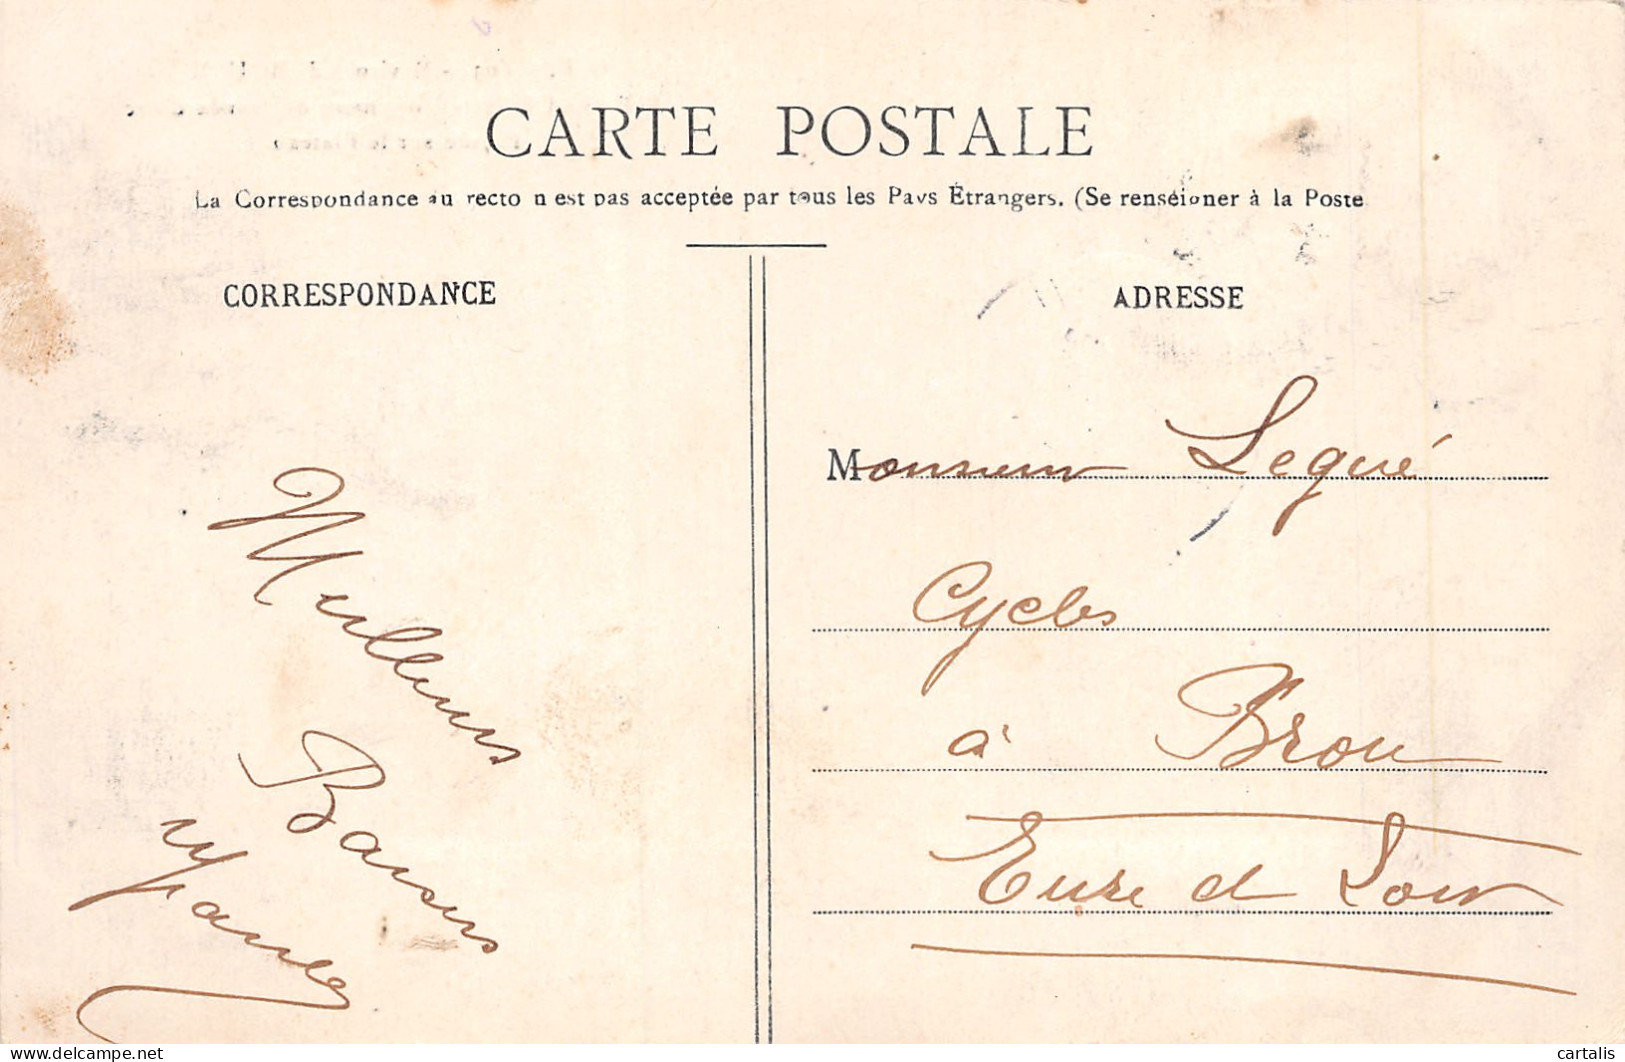 CARTE POSTALE
La Correspondance au recto n'est pas acceptée par tous les Pays Étrangers. (Se renseigner à la Poste
CORRESPONDANCE
ADRESSE
Meilleurs
Baisers
Monsieur Legué
Cycles
à Brou
Eure et Loir
www.delcampe.net
cartalis